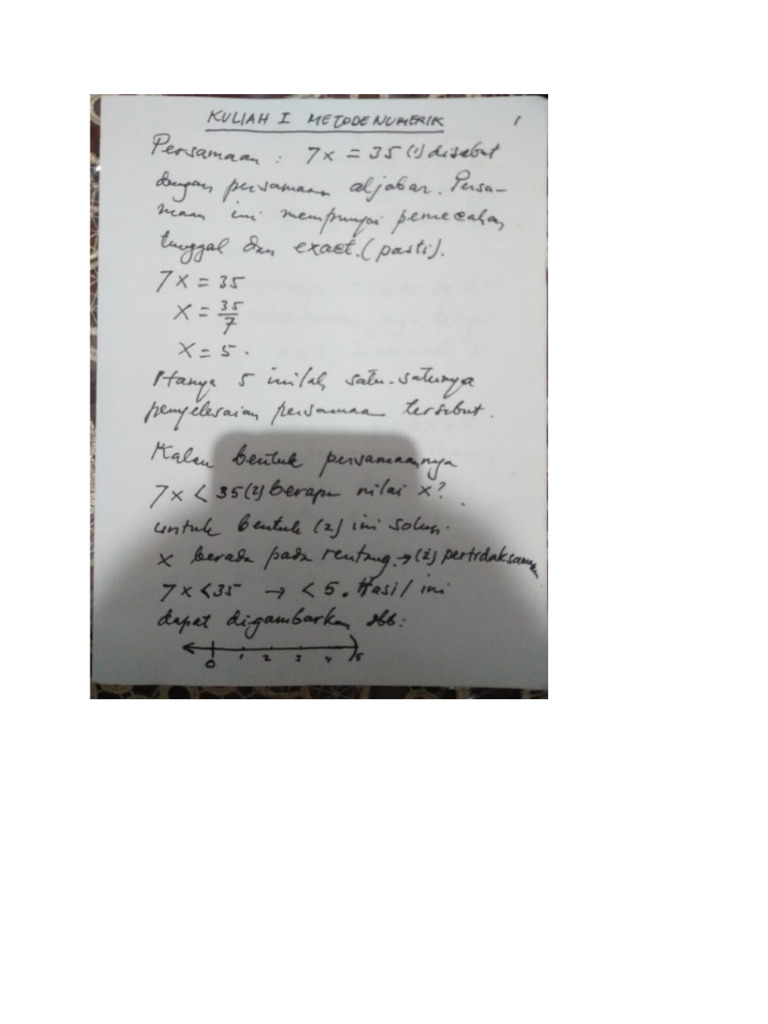 KULIAH I METODE NUMERIK 1
Persamaan : 7x = 35 (1) disebut
dengan persamaan aljabar. Persa-
maan ini mempunyai pemecahan
tunggal dan exact. (pasti).
7x = 35
x = 35/7
x = 5.
Hanya 5 inilah satu-satunya
penyelesaian persamaan tersebut.
Kalau bentuk persamaannya
7x < 35 (2) berapa nilai x?
untuk bentuk (2) ini solusi
x berada pada rentang. → (2) pertidaksamaan
7x < 35 → < 5. Hasil ini
dapat digambarkan sbb:
0 1 2 3 4 5